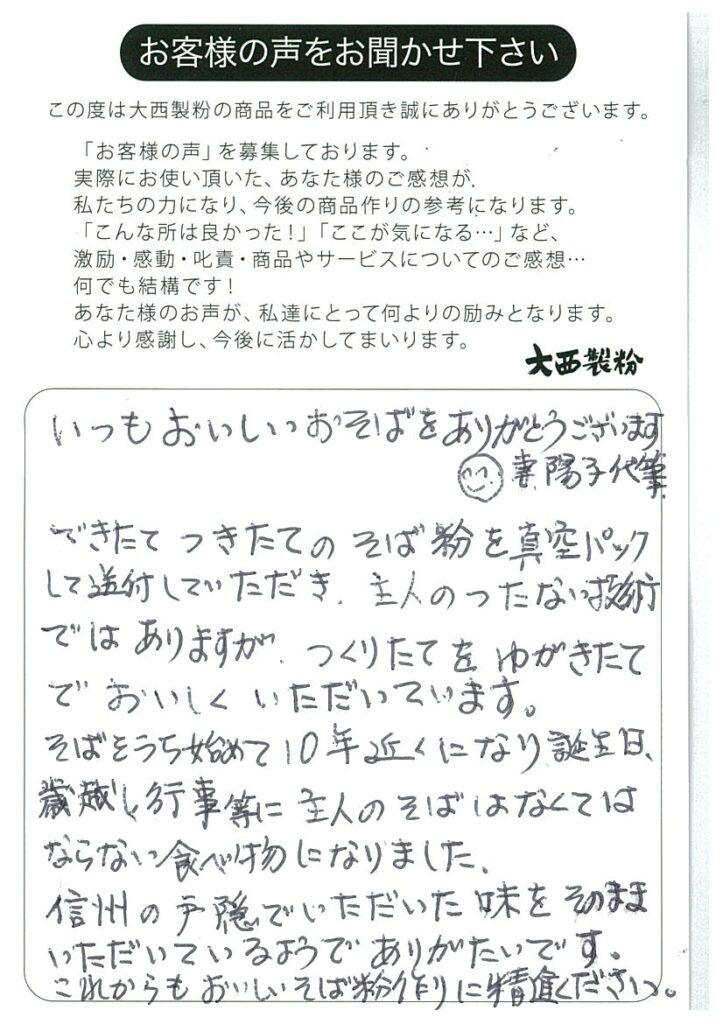 お客様の声をお聞かせ下さい
この度は大西製粉の商品をご利用頂き誠にありがとうございます。
「お客様の声」を募集しております。
実際にお使い頂いた、あなた様のご感想が、
私たちの力になり、今後の商品作りの参考になります。
「こんな所は良かった!」「ここが気になる…」など、
激励・感動・叱責・商品やサービスについてのご感想…
何でも結構です!
あなた様のお声が、私達にとって何よりの励みとなります。
心より感謝し、今後に活かしてまいります。
大西製粉
いつもおいしいおそばをありがとうございます
妻 陽子代筆
できたて つきたての そば粉を真空パック
して送付していただき、主人のつたない技術
ではありますが、つくりたてをゆがきたて
で おいしく いただいています。
そばをうち始めて10年近くになり誕生日、
歳越し行事等に主人のそばはなくては
ならない食べ物になりました。
信州の戸隠でいただいた味をそのまま
いただいているようでありがたいです。
これからもおいしいそば粉作りに精進ください。